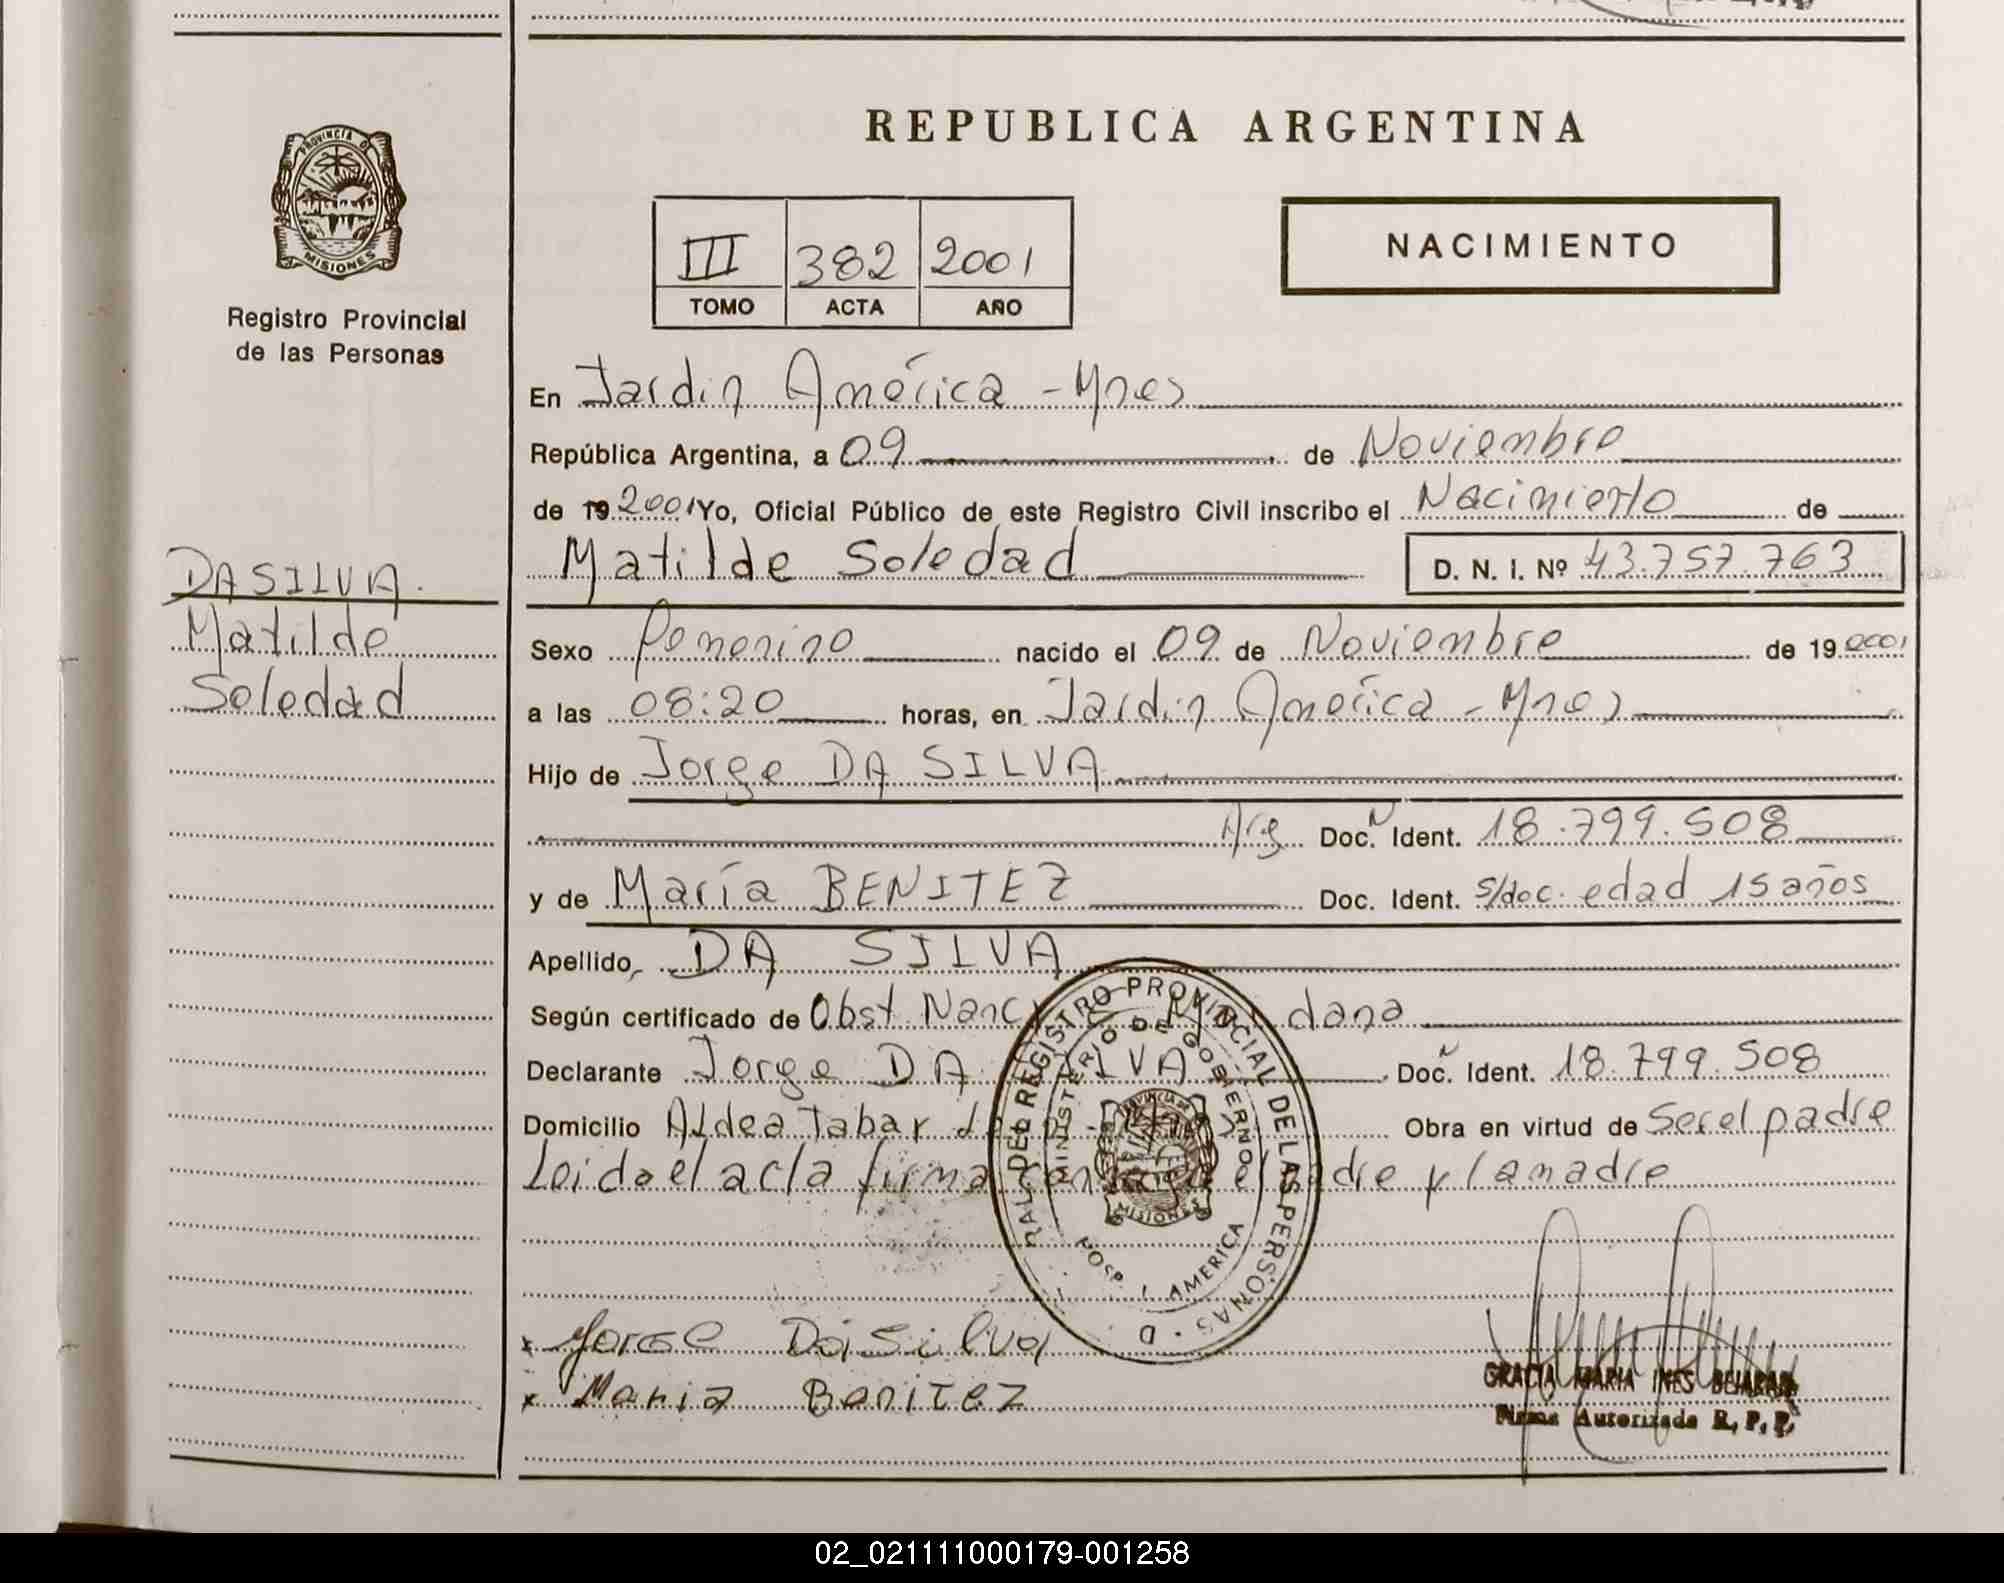 PROVINCIA DE
MISIONES
Registro Provincial
de las Personas
DA SILVA.
Matilde
Soledad
REPUBLICA ARGENTINA
III 382 2001
TOMO ACTA AÑO
NACIMIENTO
En Jardin América - Mnes
República Argentina, a 09 de Noviembre
de 19 2001 Yo, Oficial Público de este Registro Civil inscribo el Nacimiento de
Matilde Soledad D. N. I. Nº 43.757.763
Sexo Femenino nacido el 09 de Noviembre de 19 2001
a las 08:20 horas, en Jardin América - Mnes
Hijo de Jorge DA SILVA
Arg Doc. Ident. 18.799.508
y de María BENITEZ Doc. Ident. s/doc. edad 15 años
Apellido DA SILVA
Según certificado de Obst Nanc dana
Declarante Jorge DA SILVA Doc. Ident. 18.799.508
Domicilio Aldea Tabay Obra en virtud de Ser el padre
Leida el acta firma el padre y la madre
REGISTRO PROVINCIAL DE LAS PERSONAS
MINISTERIO DE GOBIERNO
PROVINCIA DE
MISIONES
HOSP. AMERICA
x Jorge Da Silva
x Maria Benitez
GRACIA MARIA INES BEJARAN
Firma Autorizada R. P. P.
02_021111000179-001258